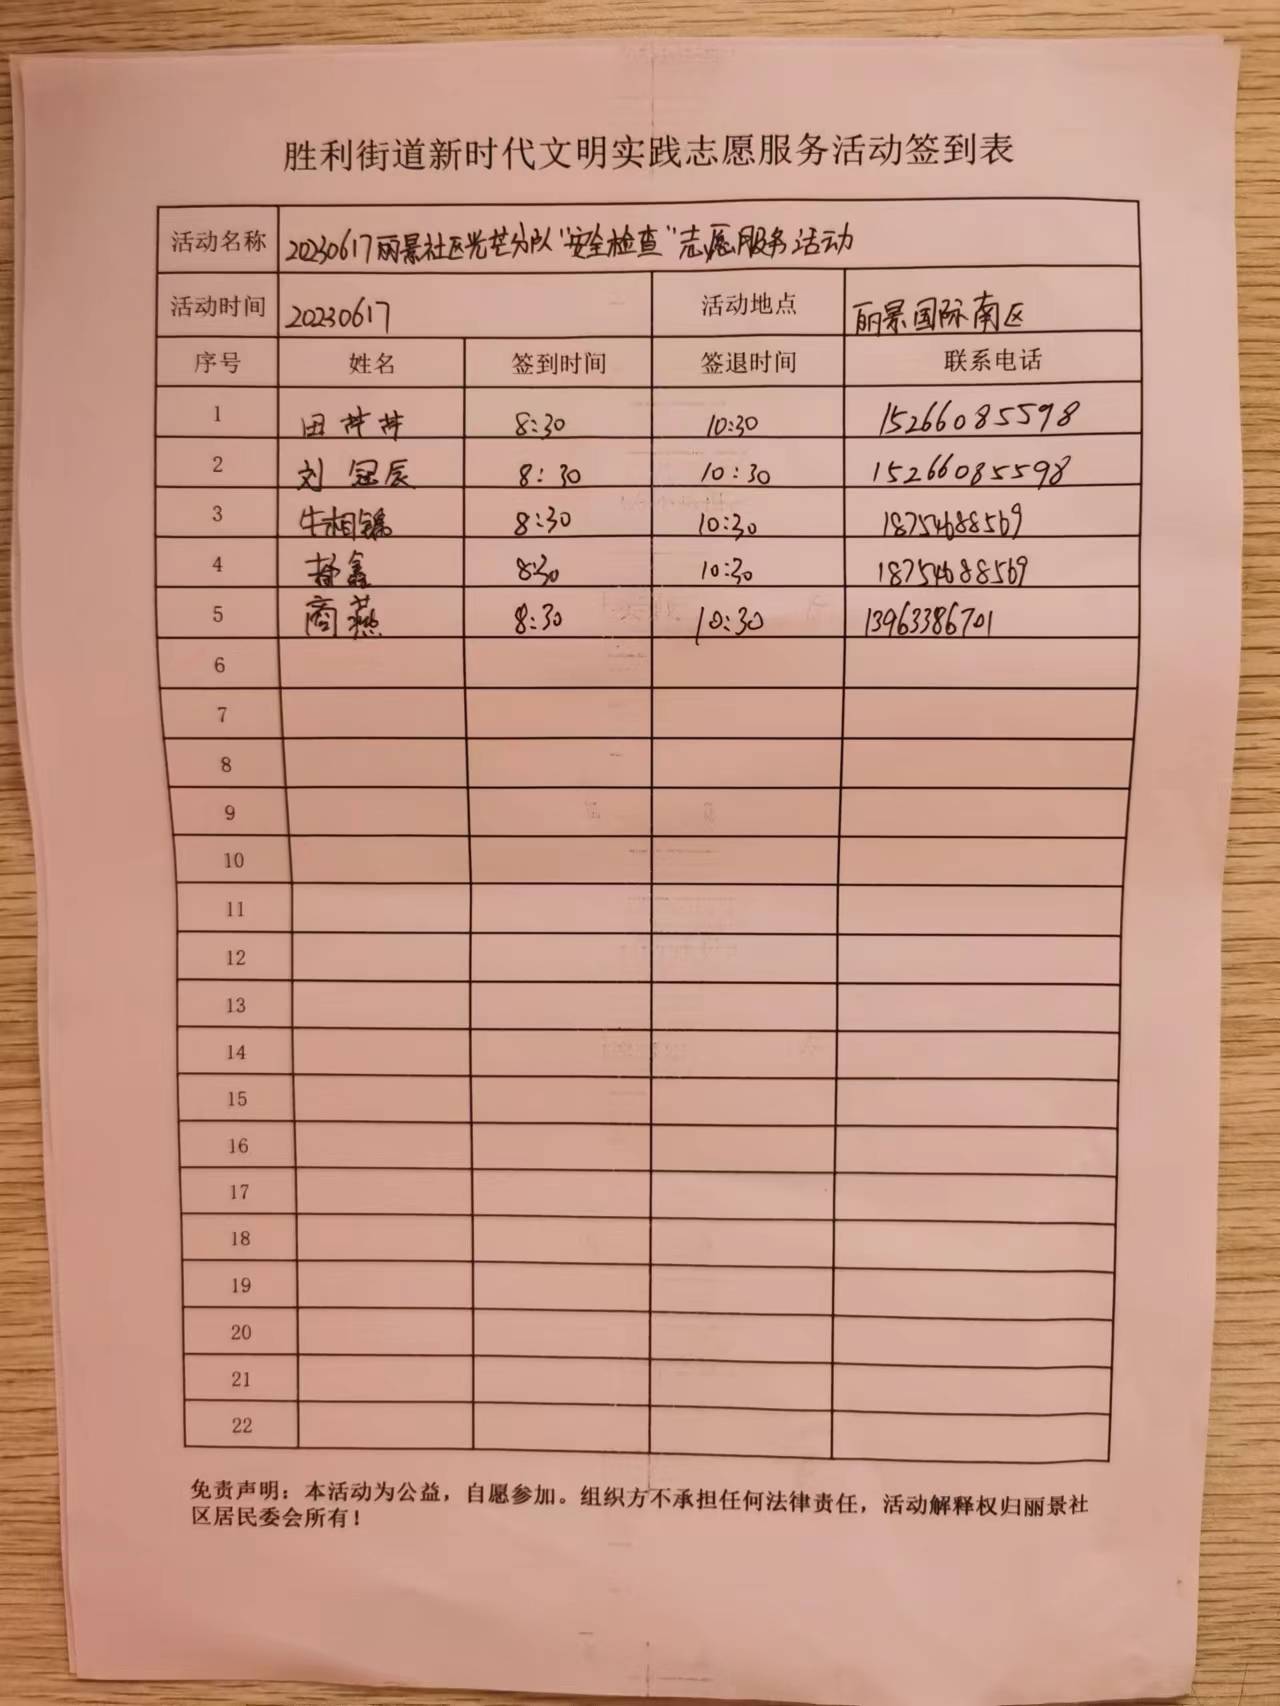 胜利街道新时代文明实践志愿服务活动签到表
活动名称 20230617丽景社区光芒分队“安全检查”志愿服务活动
活动时间 20230617 活动地点 丽景国际南区
序号 姓名 签到时间 签退时间 联系电话
1 田芹芹 8:30 10:30 15266085598
2 刘冠辰 8:30 10:30 15266085598
3 牛相 8:30 10:30 18754688569
4 鑫 8:30 10:30 18754688569
5 商燕 8:30 10:30 13963386701
6
7
8
9
10
11
12
13
14
15
16
17
18
19
20
21
22
免责声明：本活动为公益，自愿参加。组织方不承担任何法律责任，活动解释权归丽景社
区居民委会所有！